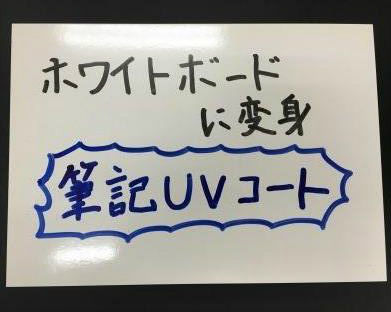 ホワイトボード
に変身
筆記UVコート